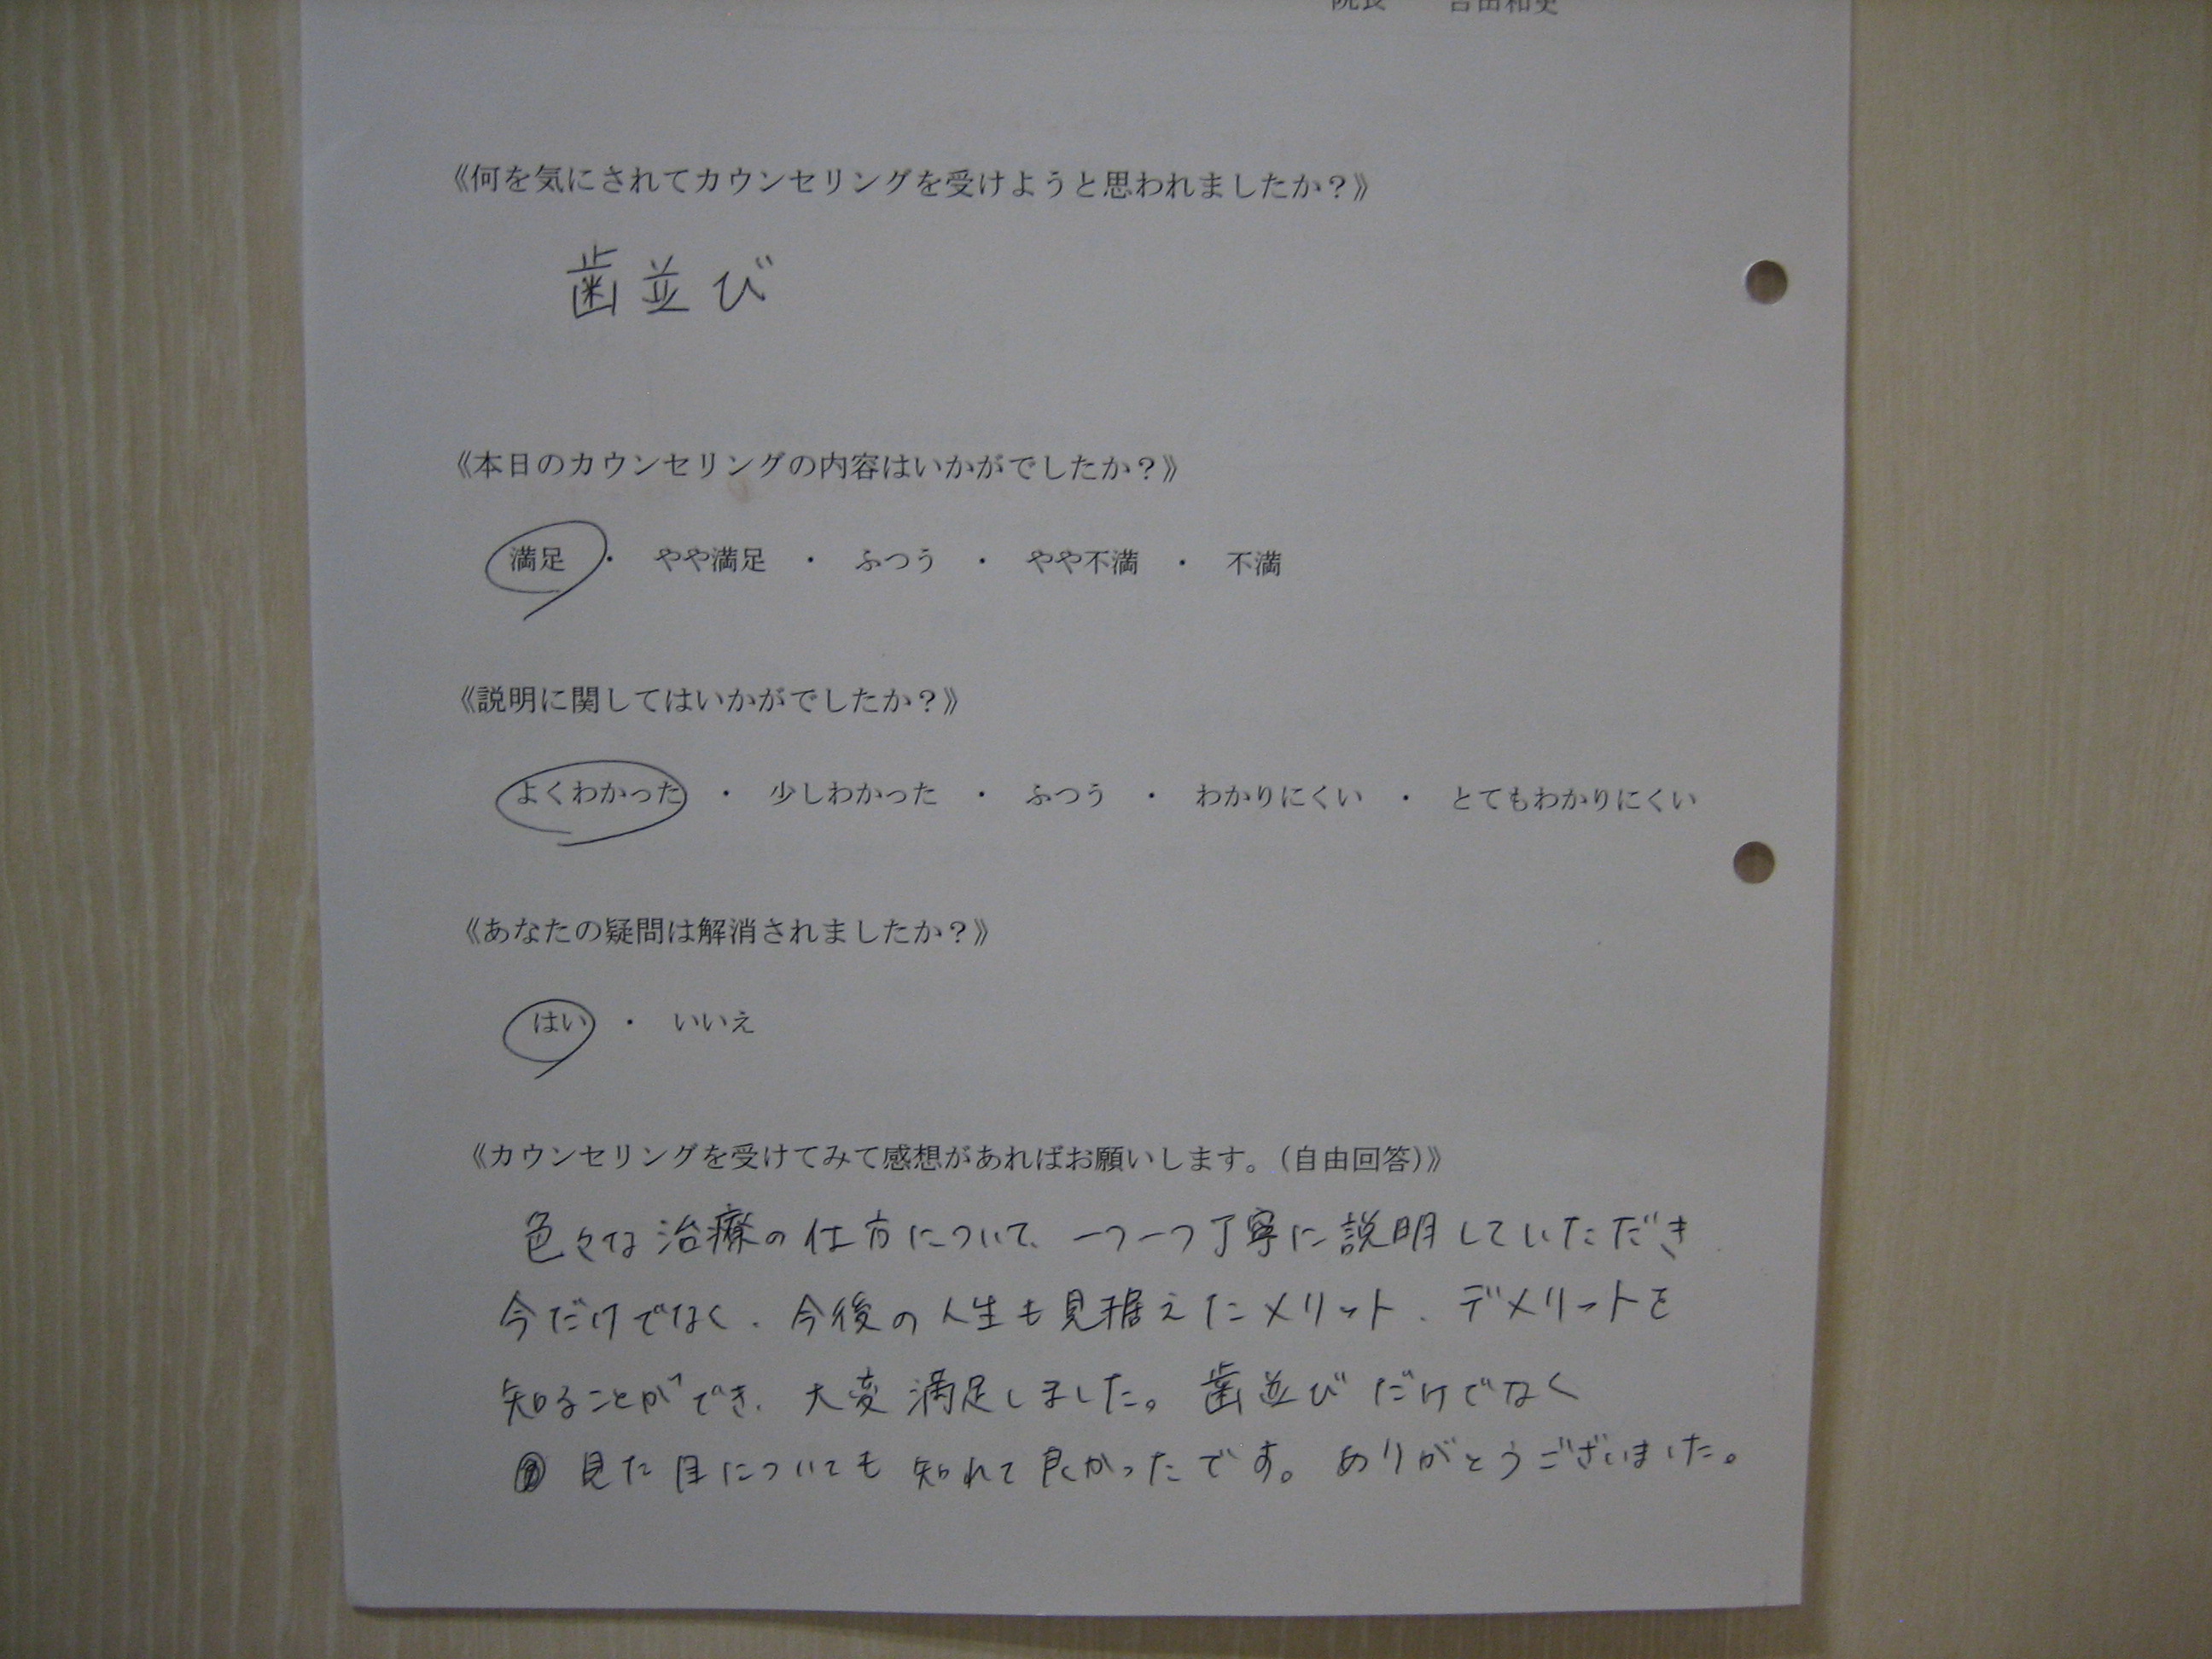 《何を気にされてカウンセリングを受けようと思われましたか？》
歯並び
《本日のカウンセリングの内容はいかがでしたか？》
満足 ・ やや満足 ・ ふつう ・ やや不満 ・ 不満
《説明に関してはいかがでしたか？》
よくわかった ・ 少しわかった ・ ふつう ・ わかりにくい ・ とてもわかりにくい
《あなたの疑問は解消されましたか？》
はい ・ いいえ
《カウンセリングを受けてみて感想があればお願いします。（自由回答）》
色々な治療の仕方について、一つ一つ丁寧に説明していただき
今だけでなく、今後の人生も見据えたメリット、デメリットを
知ることができ、大変満足しました。歯並びだけでなく
見た目についても知れて良かったです。ありがとうございました。